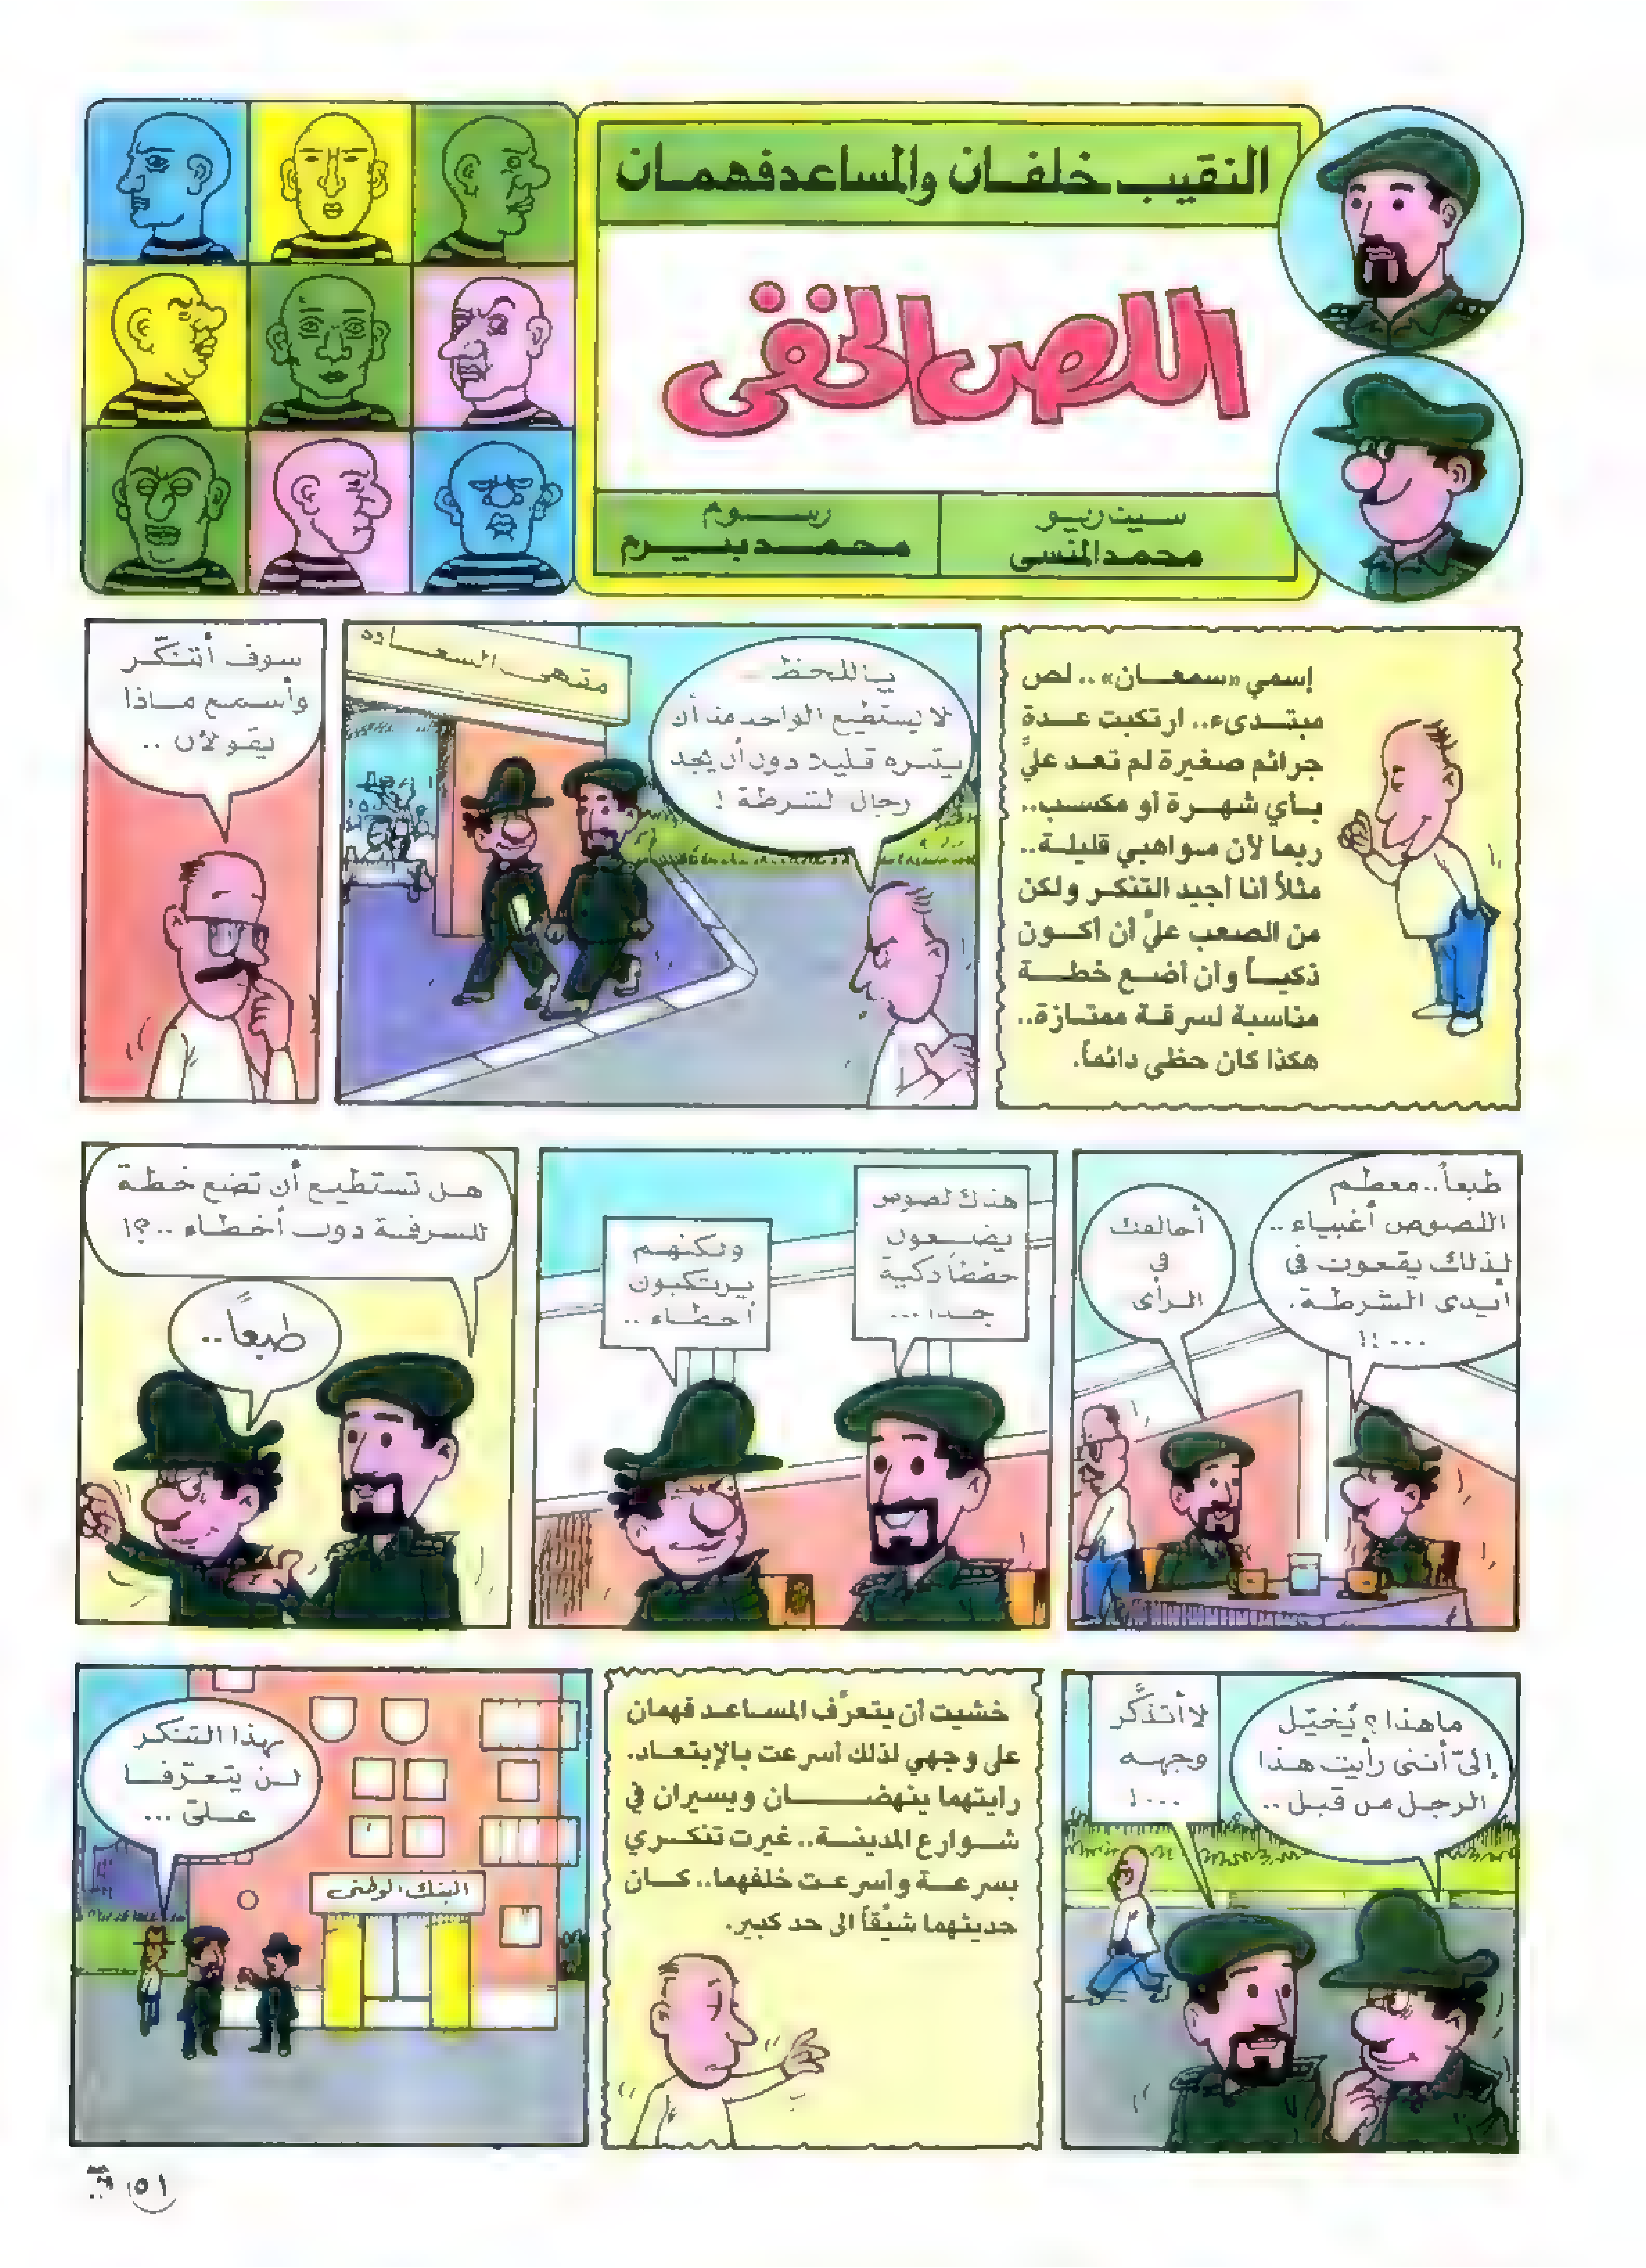 النقيب خلفان والمساعد فهمان
اللص الخفى
سيناريو
محمد المنسى
رسوم
محمد بيرم
إسمي «سمعان».. لص
مبتدىء.. ارتكبت عدة
جرائم صغيرة لم تعد عليَّ
بأي شهرة أو مكسب..
ربما لأن مواهبي قليلة..
مثلاً أنا أجيد التنكر ولكن
من الصعب عليَّ أن أكون
ذكياً وأن أضع خطة
مناسبة لسرقة ممتازة..
هكذا كان حظي دائماً.
مقهى السعاده
ياللحظ
لا يستطيع الواحد منا أن
يتنزه قليلا دون أن يجد
رجال الشرطة !
سوف أتنكّر
وأسمع ماذا
يقولان ..
طبعاً.. معظم
اللصوص أغبياء ..
لذلك يقعون فى
أيدى الشرطة.
...!!
أخالفك
فى
الرأى
هناك لصوص
يضعون
خططاً ذكية
جدا ...
ولكنهم
يرتكبون
أخطاء ..
هل تستطيع أن تضع خطة
للسرقة دون أخطاء ..؟!
طبعاً..
ماهذا؟ يُخيّل
إلىّ أننى رأيت هذا
الرجل من قبل ..
لا أتذكَّر
وجهه
...!
خشيت أن يتعرَّف المساعد فهمان
على وجهي لذلك أسرعت بالإبتعاد.
رايتهما ينهضان ويسيران في
شوارع المدينة.. غيرت تنكري
بسرعة وأسرعت خلفهما.. كان
حديثهما شيِّقاً الى حد كبير.
بهذا التنكر
لن يتعرّفا
علىّ ...
البنك الوطنى
٥١